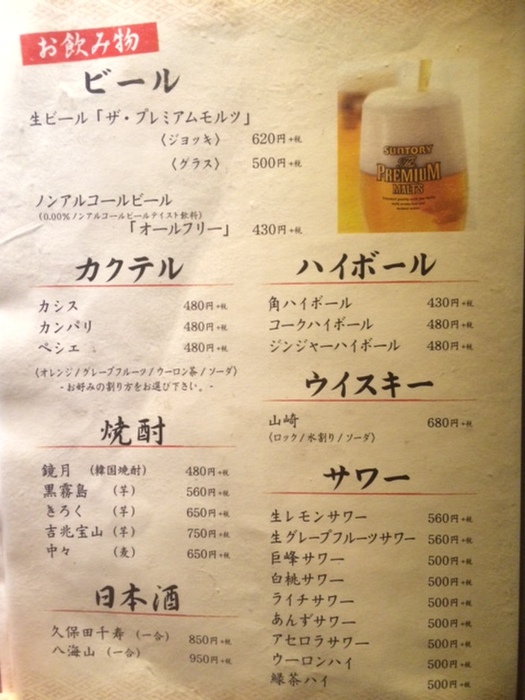 お飲み物
ビール
生ビール「ザ・プレミアムモルツ」
〈ジョッキ〉 620円+税
〈グラス〉 500円+税
ノンアルコールビール
(0.00%ノンアルコールビールテイスト飲料)
「オールフリー」 430円+税
SUNTORY
The
PREMIUM
MALT'S
カクテル
カシス 480円+税
カンパリ 480円+税
ペシェ 480円+税
〈オレンジ/グレープフルーツ/ウーロン茶/ソーダ〉
-お好みの割り方をお選び下さい。-
焼酎
鏡月 (韓国焼酎) 480円+税
黒霧島 (芋) 560円+税
きろく (芋) 650円+税
吉兆宝山 (芋) 750円+税
中々 (麦) 650円+税
日本酒
久保田千寿 (一合) 850円+税
八海山 (一合) 950円+税
ハイボール
角ハイボール 430円+税
コークハイボール 480円+税
ジンジャーハイボール 480円+税
ウイスキー
山崎 680円+税
〈ロック/水割り/ソーダ〉
サワー
生レモンサワー 560円+税
生グレープフルーツサワー 560円+税
巨峰サワー 500円+税
白桃サワー 500円+税
ライチサワー 500円+税
あんずサワー 500円+税
アセロラサワー 500円+税
ウーロンハイ 500円+税
緑茶ハイ 500円+税